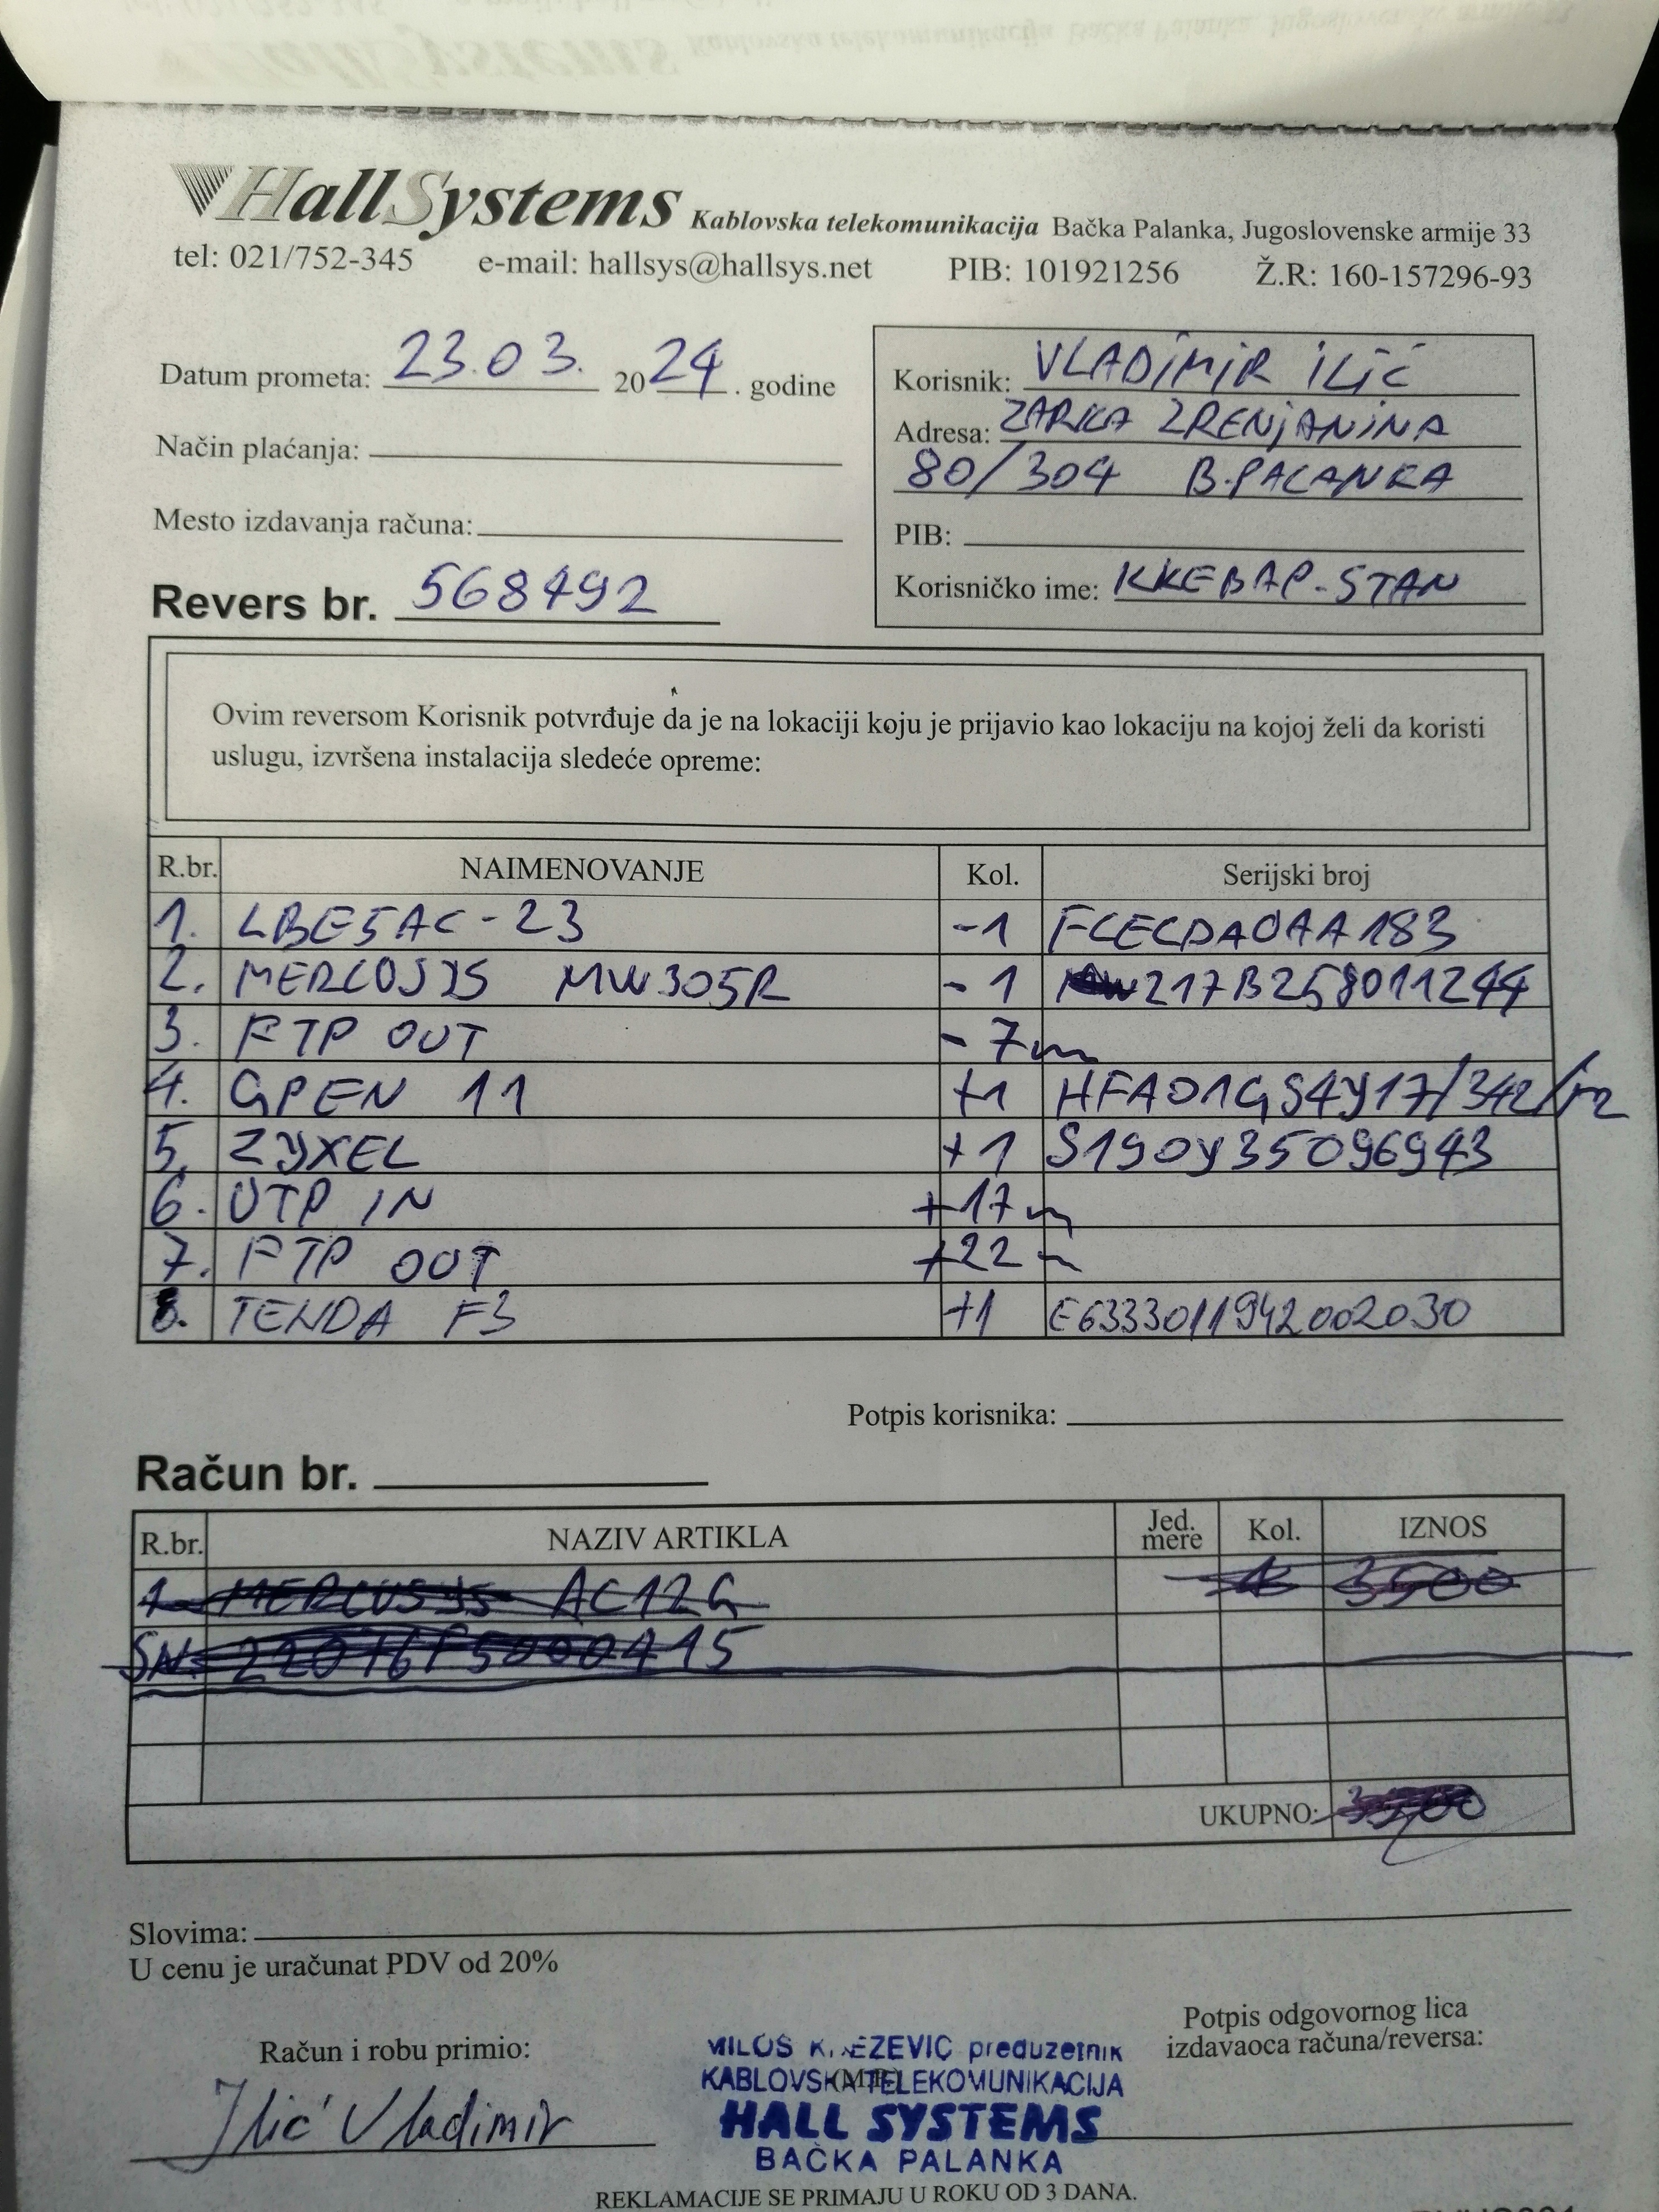 HallSystems Kablovska telekomunikacija Bačka Palanka, Jugoslovenske armije 33
tel: 021/752-345 e-mail: hallsys@hallsys.net PIB: 101921256 Ž.R: 160-157296-93
Datum prometa: 23.03. 2024. godine
Način plaćanja:
Mesto izdavanja računa:
Revers br. 568492
Korisnik: VLADIMIR ILIĆ
Adresa: ZARKA ZRENJANINA
80/304 B.PALANKA
PIB:
Korisničko ime: KKEBAP-STAN
Ovim reversom Korisnik potvrđuje da je na lokaciji koju je prijavio kao lokaciju na kojoj želi da koristi
uslugu, izvršena instalacija sledeće opreme:
R.br. NAIMENOVANJE Kol. Serijski broj
1. LBE5AC-23 -1 FCECDA0AA183
2. MERCUSYS MW305R -1 217B258011244
3. FTP OUT -7m
4. GPEN 11 +1 HFA01GS4Y17/342/r2
5. ZYXEL +1 S190Y35096943
6. UTP IN +17m
7. FTP OUT +22m
8. TENDA F3 +1 E6333011942002030
Potpis korisnika:
Račun br.
R.br. NAZIV ARTIKLA Jed. mere Kol. IZNOS
1. MERCUSYS AC12G 1 3500
SN:
UKUPNO: 3500
Slovima:
U cenu je uračunat PDV od 20%
Račun i robu primio:
Ilić Vladimir
MILOŠ KNEZEVIC preduzetnik
KABLOVSKA TELEKOMUNIKACIJA
(M.P.)
HALL SYSTEMS
BAČKA PALANKA
Potpis odgovornog lica
izdavaoca računa/reversa:
REKLAMACIJE SE PRIMAJU U ROKU OD 3 DANA.